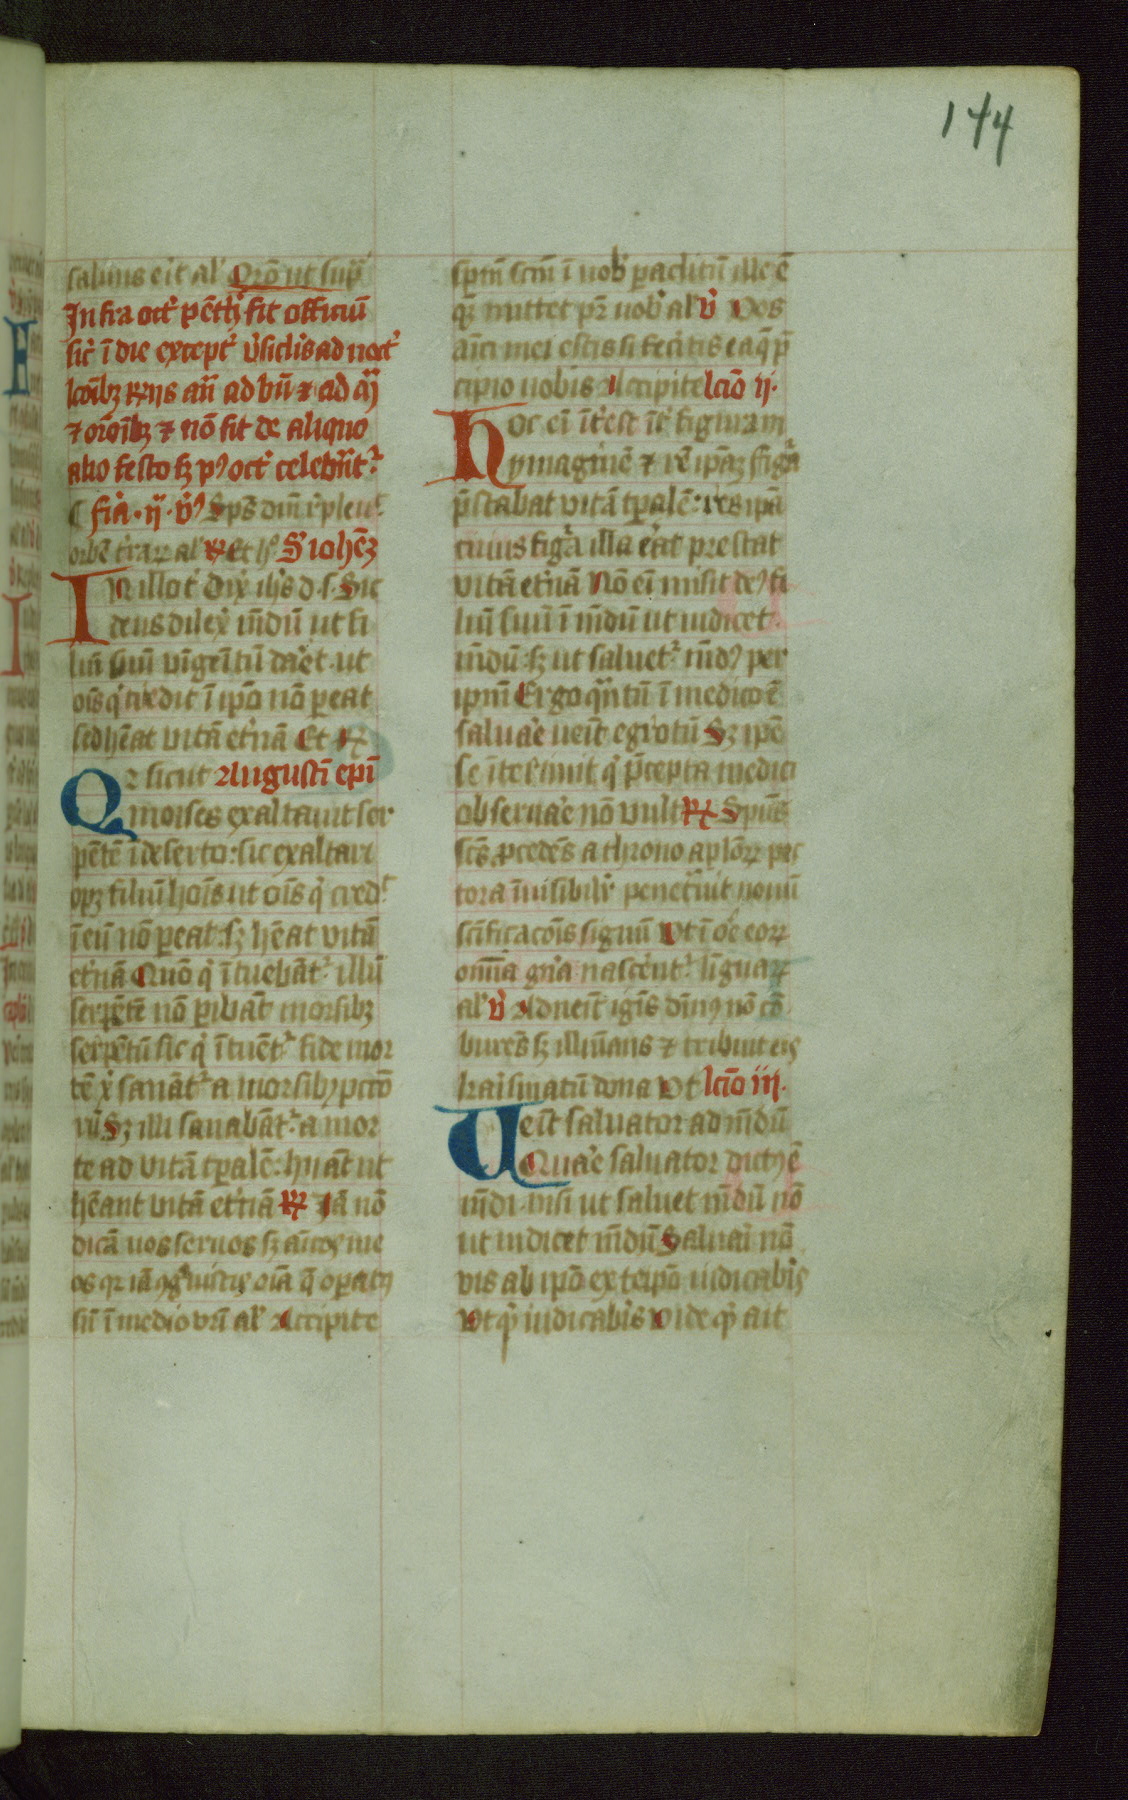 144
saluus eīt al' Orō ut sup̄
Infra oct' pēth' fit officiū
sic' ī die except' v̄siclis ad noct'
lcōibꝫ ꝶijs an̄ ad bn̄ ⁊ ad m̄
⁊ orōībꝫ ⁊ nō fit de aliquo
alio festo sꝫ pꝰ oct' celebrn̄t'
fiā · ij · v̄ Sps dn̄i r̄pleuͭ
orbē t̄rarꝝ al' ꝶ Et hͦ S' iohēꝫ
IN illo t' dix̄ ih's d. s. Sic
deus dilex̄ mūdū ut fi
liū suū vnigenitū daret · ut
oīs q̇ credit ī ip̄o nō peat
sed hēat vitā et̄nā Et ꝶ
Qr sicut Augustī ep̄i
moises exaltauit ser
pētē ī deserto: sic exaltari
opꝫ filiū hoīs ut oīs q̇ credͭ
ī eū nō peat: sꝫ hēat vitā
et̄nā Quō q̇ ītuebāt' illū
serpētē nō pibāt morsibꝫ
serpētū sic q̇ ītuēt' fide mor
tē x̄ sanāt' a morsibꝫ pctō
rū Sꝫ illi sanabāt' a mor
te ad vitā tp̄alē: hij aūt ut
hēant vitā et̄nā ꝶ Iā nō
dicā uos seruos sꝫ amicos me
os qr iā ꝯgnuistis oīa q̄ opatꝰ
sū ī medio vrī al' Accipite
sp̄m sc̄m ī uob' paclitū ille ē
quē mittet pr̄ uob' al' v̄ Vos
amīci mei estis si fecitis ea q̄ p̄
cipio uobis Accipite lcīo ij.
Hoc ei īterest īt' figuram
ymaginē ⁊ rē ip̄aꝫ figā
p̄stabat vitā tp̄alē: res ip̄a
cuius figā illa erat prestat
vitā et̄nā Nō ei misit deꝰ fi
liū suū ī mūdū ut iudicet
mūdū: sꝫ ut saluet' mūdꝰ per
ip̄m Ergo qn̄tū ī medico ē
saluare ueīt egrotū Sꝫ ip̄e
se īterimit q̇ p̄cepta medici
obseruare nō vult ꝶ Spūs
sc̄s pcedēs a throno aplōrꝝ pec
tora īuisibilit' penet̄uit nouū
sc̄ificacōis signū Vt ī ore eorꝝ
omīa gn̄a nascēnt' liguarꝝ
al' v̄ Adueīt igīs dīnꝰ nō cō
burēs sꝫ illūinās ⁊ tribuit eis
kaismatū dona Vt lcīo iij.
Ueīt saluator ad mūdū
Quare saluator dictꝰ ē
mūdi · nisi ut saluet mūdū nō
ut iudicet mūdū Saluari nō
vis ab ip̄o ex teip̄o iudicabis
Vt q̇d iudicabis Vide q̇d ait